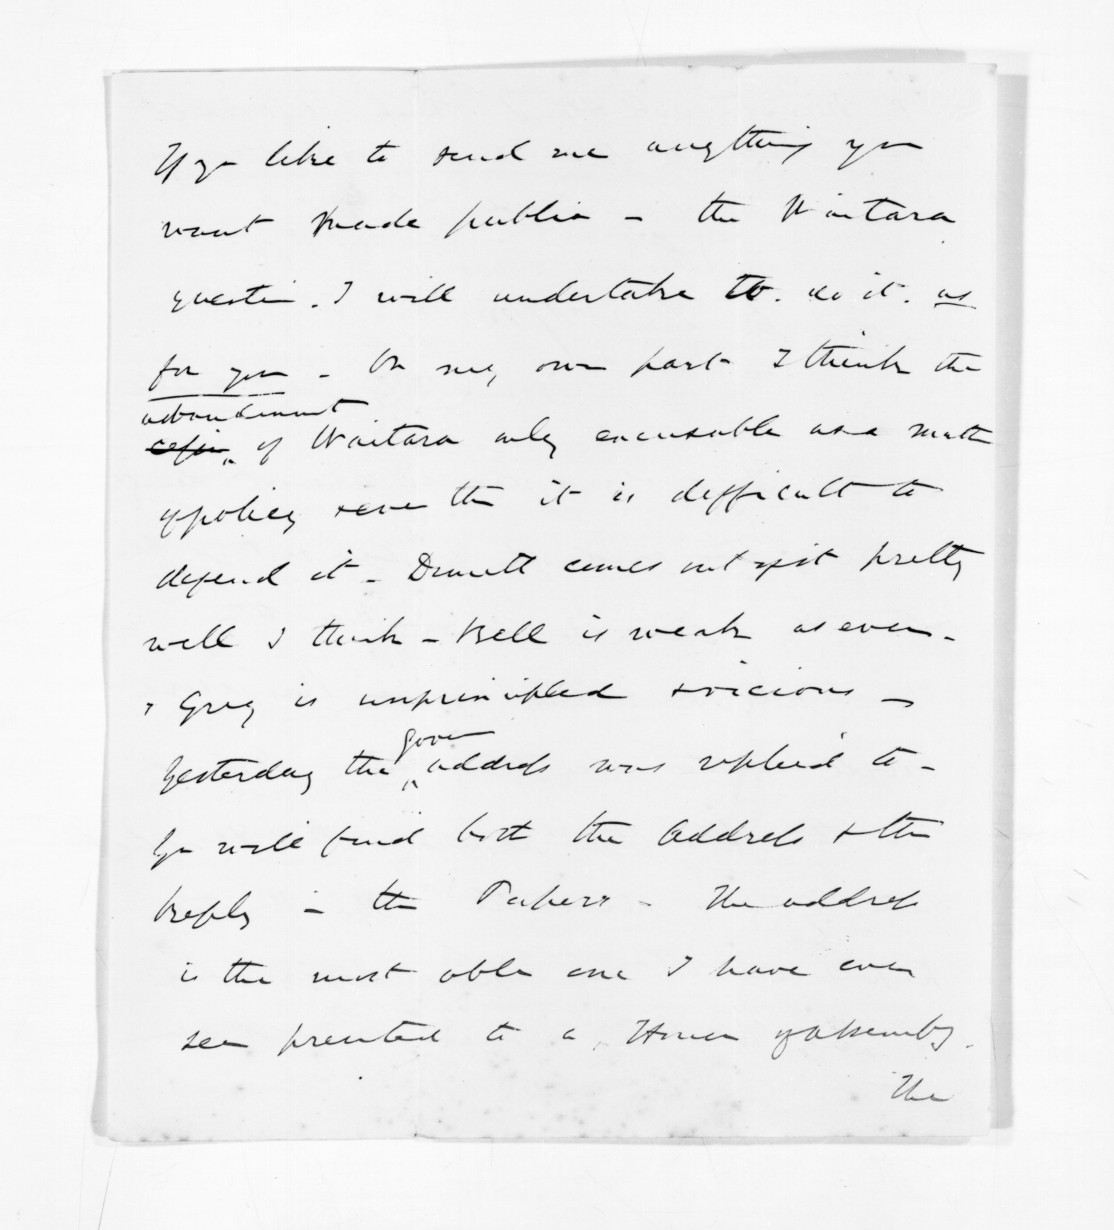 If you like to send me anything you
want made public - the Waitara
question. I will undertake to. do it. as
for you - On my own part I think the
abandonment
of Waitara only excusable as a matter
of policy & even then it is difficult to
defend it - Domett comes out of it pretty
well I think - Bell is weak as ever -
& Grey is unprincipled & vicious -
Gover
Yesterday the address was replied to -
You will find both the Address & the
Reply - the Papers - The address
is the most able one I have ever
seen presented to a House of Assembly.
The